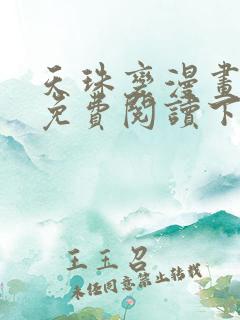 天珠變漫畫
免費閱讀下
王玉召
未经同意禁止转载